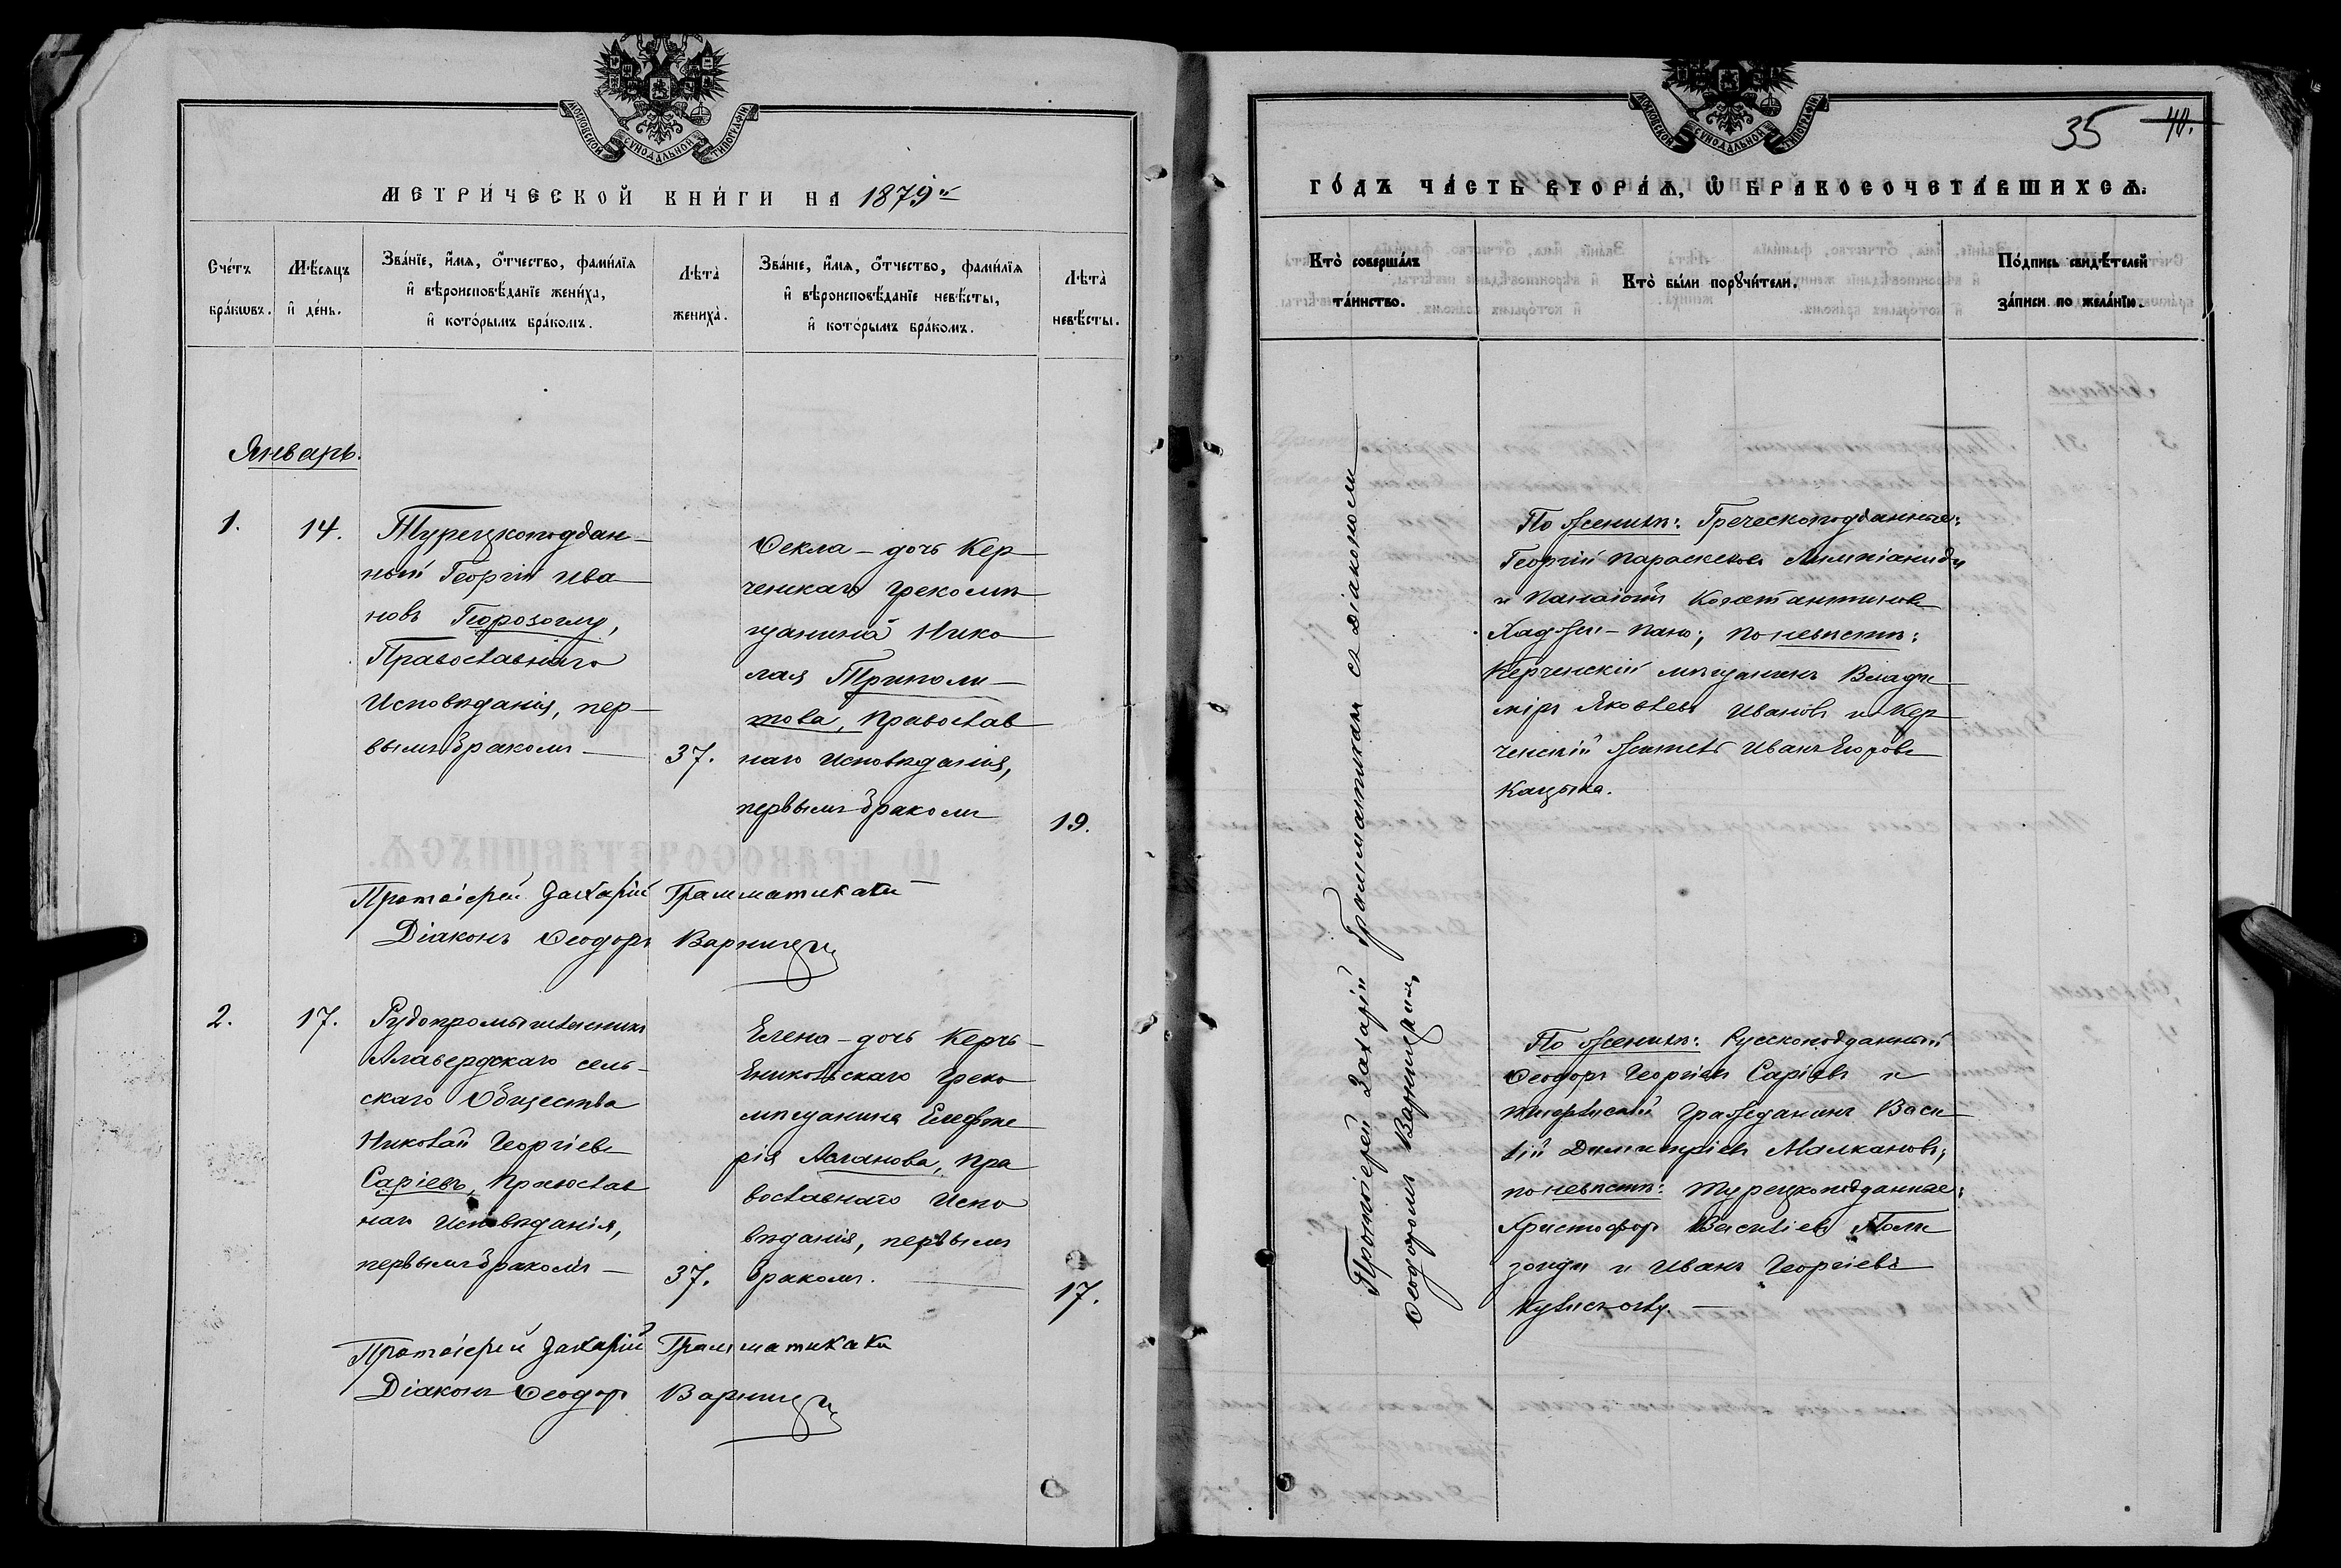 МОСКОВСКОЙ СѴНОДАЛЬНОЙ ТИПОГРАФІИ
МЕТРИ́ЧЕСКОЙ КНИ́ГИ НА 1879й
Сче́тъ бра́кѡвъ.
Мѣ́сяцъ и҆ де́нь.
Зва́нїе, и҆́мя, ѻ҆́тчество, фами́лїя
и҆ вѣроисповѣ́данїе жениха̀,
и҆ кото́рымъ бра́комъ.
Лѣта̀
жениха̀.
Зва́нїе, и҆́мя, ѻ҆́тчество, фами́лїя
и҆ вѣроисповѣ́данїе невѣ́сты,
и҆ кото́рымъ бра́комъ.
Лѣта̀
невѣ́сты.
Январь.
1.
14.
Турецкоподдан-
ный Георгій Ива
новъ
Православнаго
Исповѣданія, пер-
вымъ бракомъ —
37.
Ѳекла - дочь Кер
ченскаго грекомѣ
щанина Нико
лая Триполи-
това, Православ
наго Исповѣданія,
первымъ бракомъ
19.
Протоіерей Захарій Грамматикаки
Діаконъ Ѳеодоръ Варницци
2.
17.
Рудопромышленникъ
Алавердскаго сель-
скаго Общества
Николай Георгіевъ
Саріевъ, Православ
наго Исповѣданія,
первымъ бракомъ —
37.
Елена - дочь Керчь-
Ениколскаго греко
мѣщанина Елефте
рія Асланова, Пра
вославнаго Испо
вѣданія, первымъ
бракомъ.
17.
Протоіерей Захарій Грамматикаки
Діаконъ Ѳеодоръ Варницци
МОСКОВСКОЙ СѴНОДАЛЬНОЙ ТИПОГРАФІИ
35 40.
ГО́ДЪ ЧА́СТЬ ВТОРА́Ѧ, Ѡ҆ БРАКОСОЧЕТА́ВШИХСѦ.
Кто̀ соверша́лъ
та́инство.
Кто̀ бы́ли порꙋчи́тели.
По́дпись свидѣ́телей
за́писи по жела́нїю.
Протоіерей Захарій Грамматикаки съ Діакономъ
Ѳеодоромъ Варницци,
По женихѣ: Греческоподданные:
Георгій Параскевовъ
и Панаіотъ Константиновъ
Хаджи-Пано; по невѣстѣ:
Керченскій мѣщанинъ Влади
міръ Яковлевъ Ивановъ и Кер
ченскій житель Иванъ Егоровъ
По женихѣ: Русскоподданный
Ѳеодоръ Георгіевъ Саріевъ и
Тифлисскій Гражданинъ Васи
лій Димитріевъ Малкановъ;
по невѣстѣ: Турецкоподданные:
Христофоръ Василіевъ
и Иванъ Георгіевъ